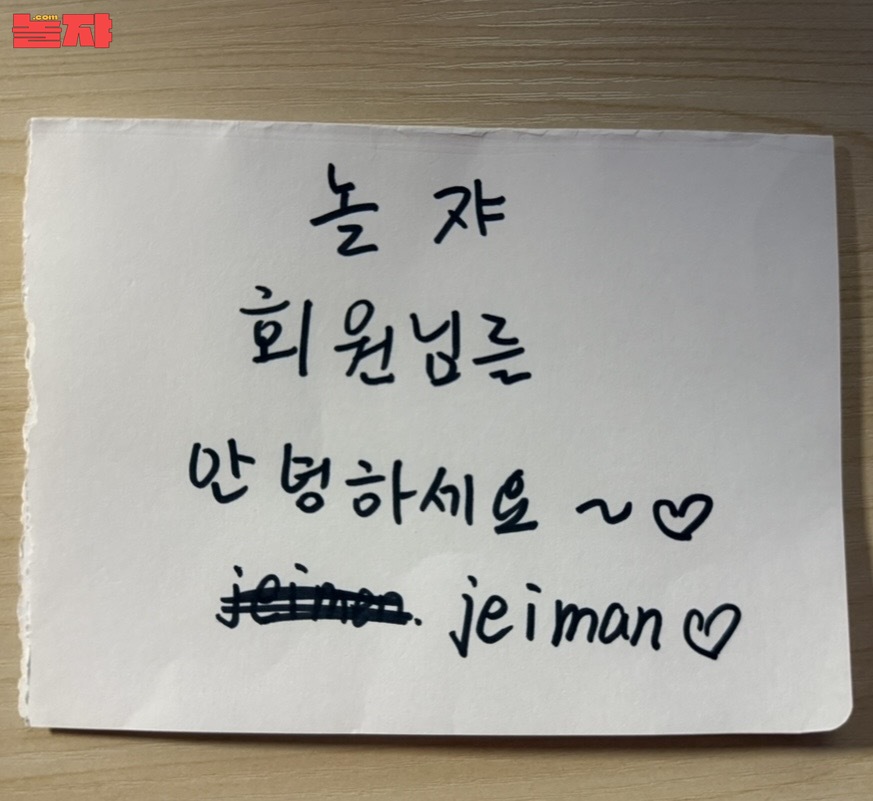 놀쟈.com
놀 쟈
회원님를
안녕하세요 ~♡
jeiman. jeiman♡